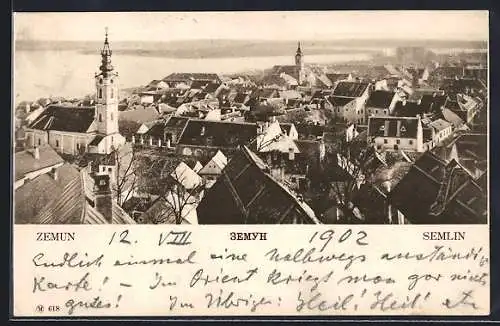 ZEMUN ЗЕМУН SEMLIN
12. VIII 1902
Endlich einmal eine halbwegs anständige
Karte! – Im Orient kriegt man gar nicht
gutes! Im Übrigen: Heil! Heil! etc
M 618